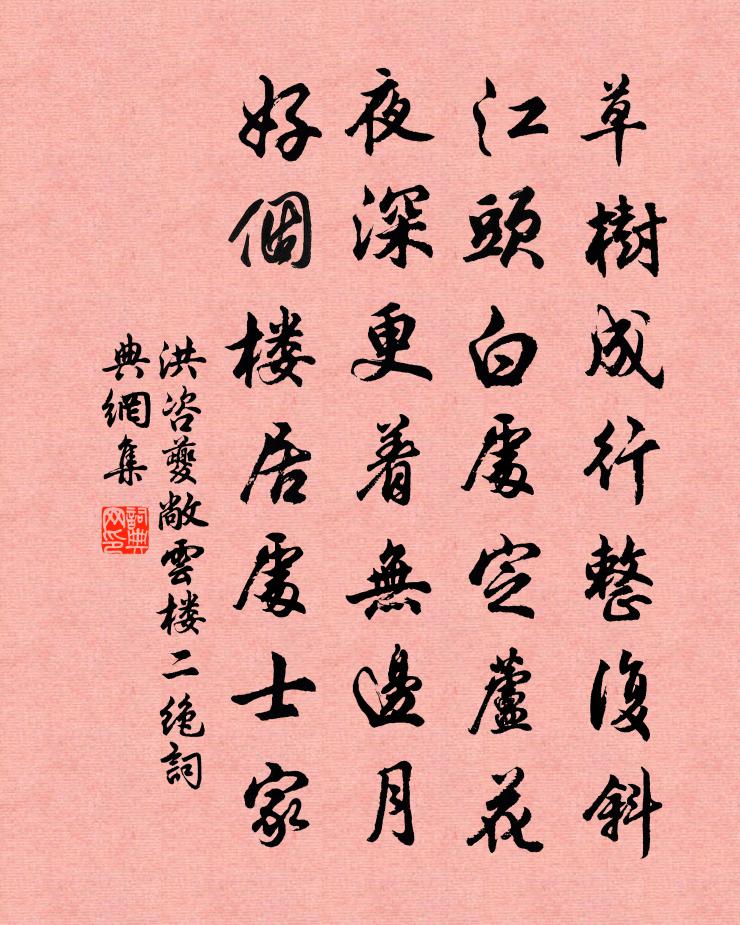 草樹成行整復斜
江頭白處定蘆花
夜深更着無邊月
好個楼居處士家
洪咨夔敞雲楼二绝詞
典網集
詞典网印